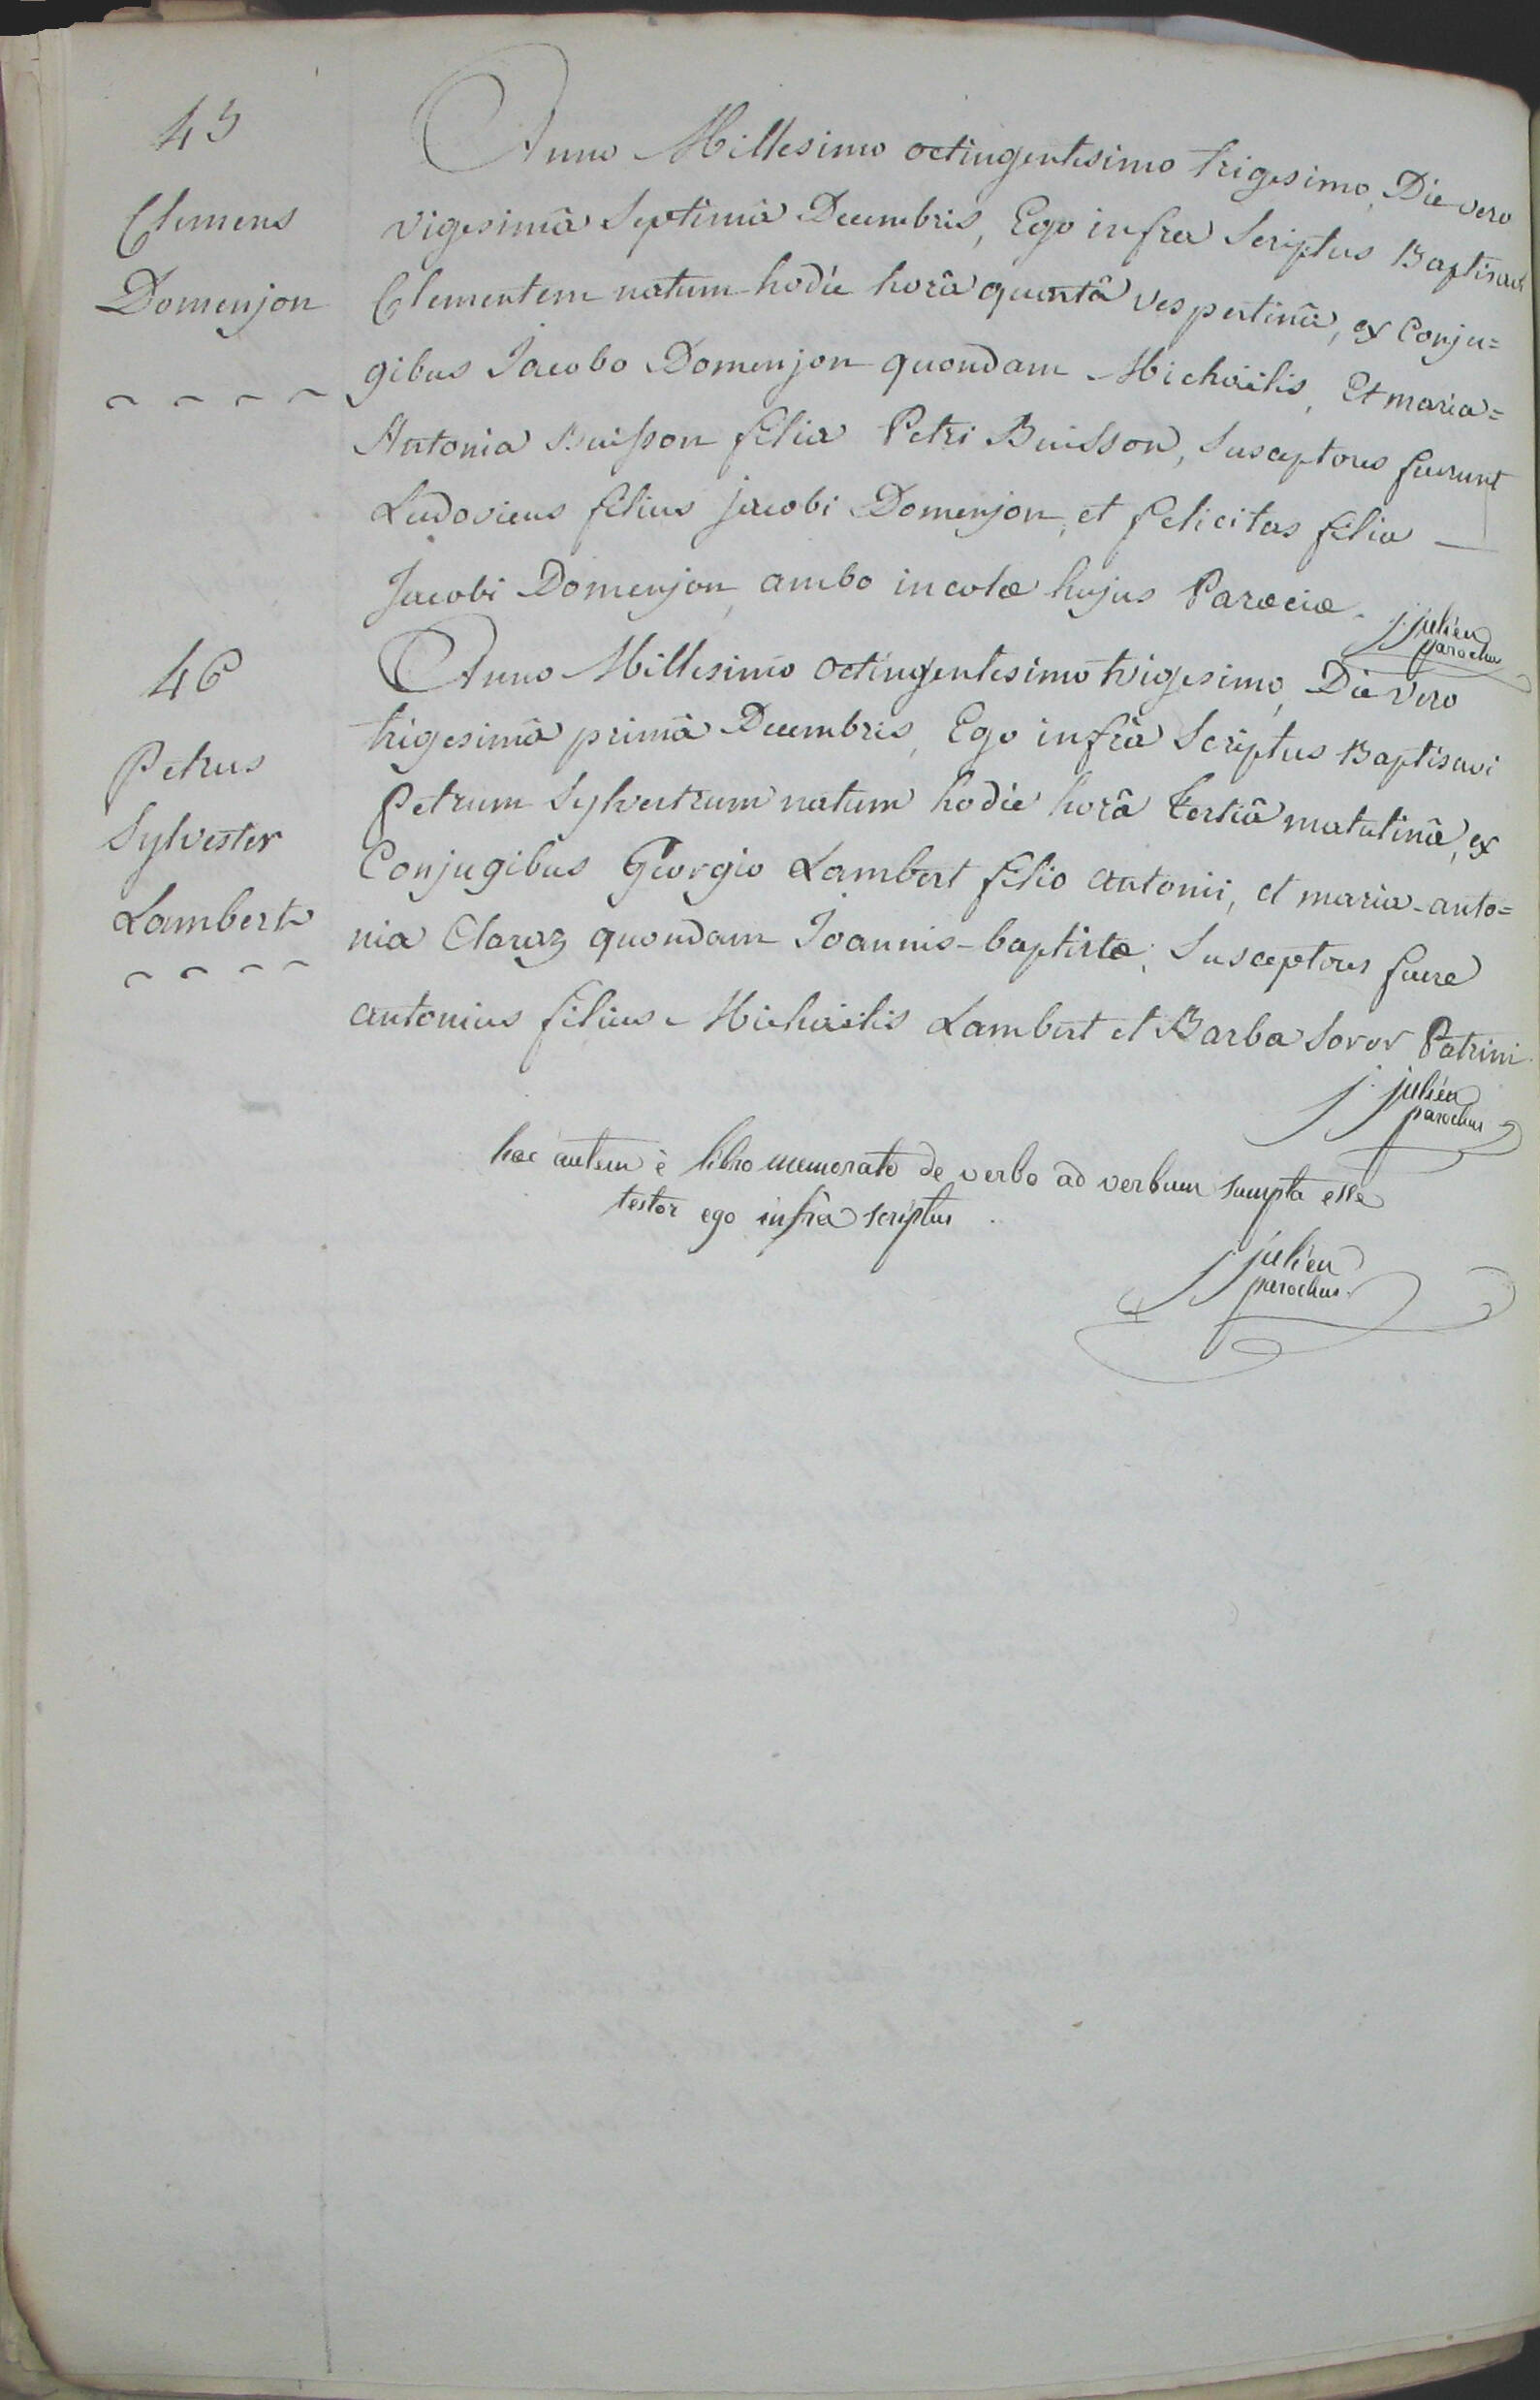 45
Clemens
Domenjon
Anno Millesimo octingentesimo trigesimo, Die vero
vigesimâ Septimâ Decembris, Ego infra Scriptus Baptisavi
Clementem natum hodie horâ quintâ vespertinâ, ex Conju=
gibus Jacobo Domenjon quondam Michaëlis, Et maria=
Antonia Buisson filia Petri Buisson, Susceptores fuerunt
Ludovicus filius jacobi Domenjon, et felicitas filia —
Jacobi Domenjon, ambo incolæ hujus Parœciæ.
j. julien
parochus
46
Petrus
Sylvester
Lambert
Anno Millesimo octingentesimo trigesimo, Die vero
trigesimâ primâ Decembris, Ego infrà Scriptus Baptisavi
Petrum Sylvestrum natum hodie horâ tertiâ matutinâ, ex
Conjugibus Georgio Lambert filio antonii, et maria-anto=
nia Claraz quondam Joannis-baptistæ, Susceptores fuere
antonius filius Michaëlis Lambert et Barba Soror Patrini.
j. julien
parochus
hæc autem è libro memorato de verbo ad verbum sumpta esse
testor ego infrà scriptus.
j. julien
parochus.